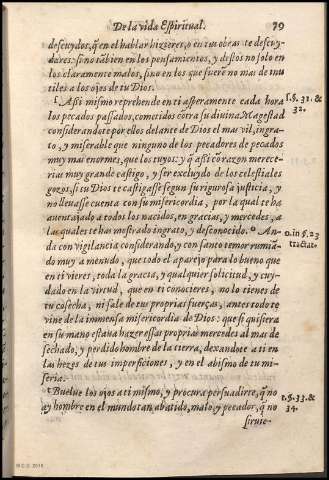 De la vida Espiritual. 79
descuydos, q̃ en el hablar hizieres, o en tus obras te descuy-
dares: sino tãbien en los pensamientos, y destos no solo en
los claramente malos, sino en los que fuere no mas de inu
tiles a los ojos de tu Dios.
Assi mismo reprehende en ti asperamente cada hora
s. §. 31. &
32.
los pecados passados, cometidos cõtra su diuina Magestad
considerandote por ellos delante de Dios el mas vil, ingra-
to, y miserable que ninguno de los pecadores de pecados
muy mas enormes, que los tuyos: y q̃ assi corazon merce-
rias muy grande castigo, y ser excluydo de los celestiales
gozos, si tu Dios te castigasse segun su rigurosa justicia, y
no lleuasse cuenta con su misericordia, por la qual te ha
auentajado a todos los nacidos, en gracias, y mercedes, a
las quales te has mostrado ingrato, y desconocido. An-
in §. 23
tractate
da con vigilancia considerando, y con santo temor rumiã-
do muy a menudo, que todo el aparejo para lo bueno que
en ti vieres, toda la gracia, y qualquier solicitud, y cuy-
dado en la virtud, que en ti conocieres, no lo tienes de
tu cosecha, ni sale de tus propias fuerças, antes todo te
vine de la immensa misericordia de Dios: que si quisiera
en su mano estaua hazer essas propias mercedes al mas de
sechado, y perdido hombre de la tierra, dexandote a ti en
las hezes de tus imperficiones, y en el abismo de tu mi-
seria.
Buelue los ojos a ti mismo, y procura persuadirte, q̃ no
§. 33. &
34.
ay hombre en el mundo tan abatido, malo, y pecador, q̃ no
siruie-